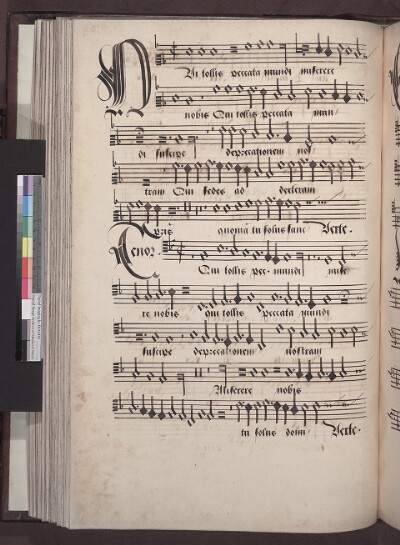 Qui tollis peccata mundi miserere
nobis Qui tollis peccata mun/
di suscipe deprecationem nos/
tram Qui sedes ad dexteram
pris quoniā tu solus sanc Verte.
Tenor.
Qui tollis pec- mundi mise
re nobis qui tollis peccata mundi
suscipe deprecationem nostram
Miserere nobis
tu solus dom/ Verte.